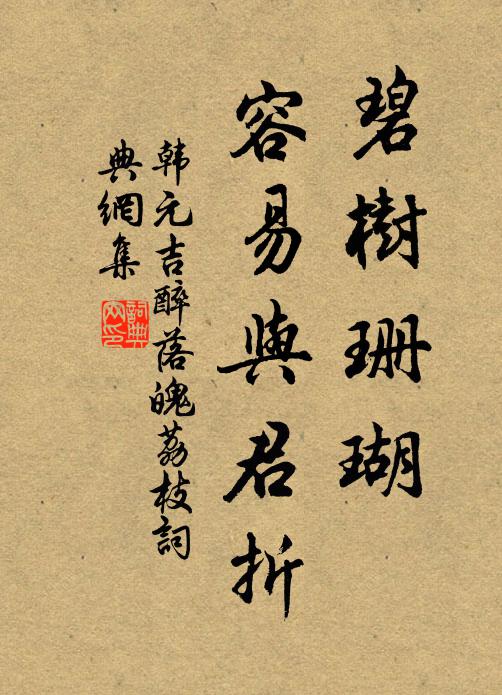 碧樹珊瑚
容易與君折
韩元吉醉落魄荔枝詞
典網集
詞典
网印